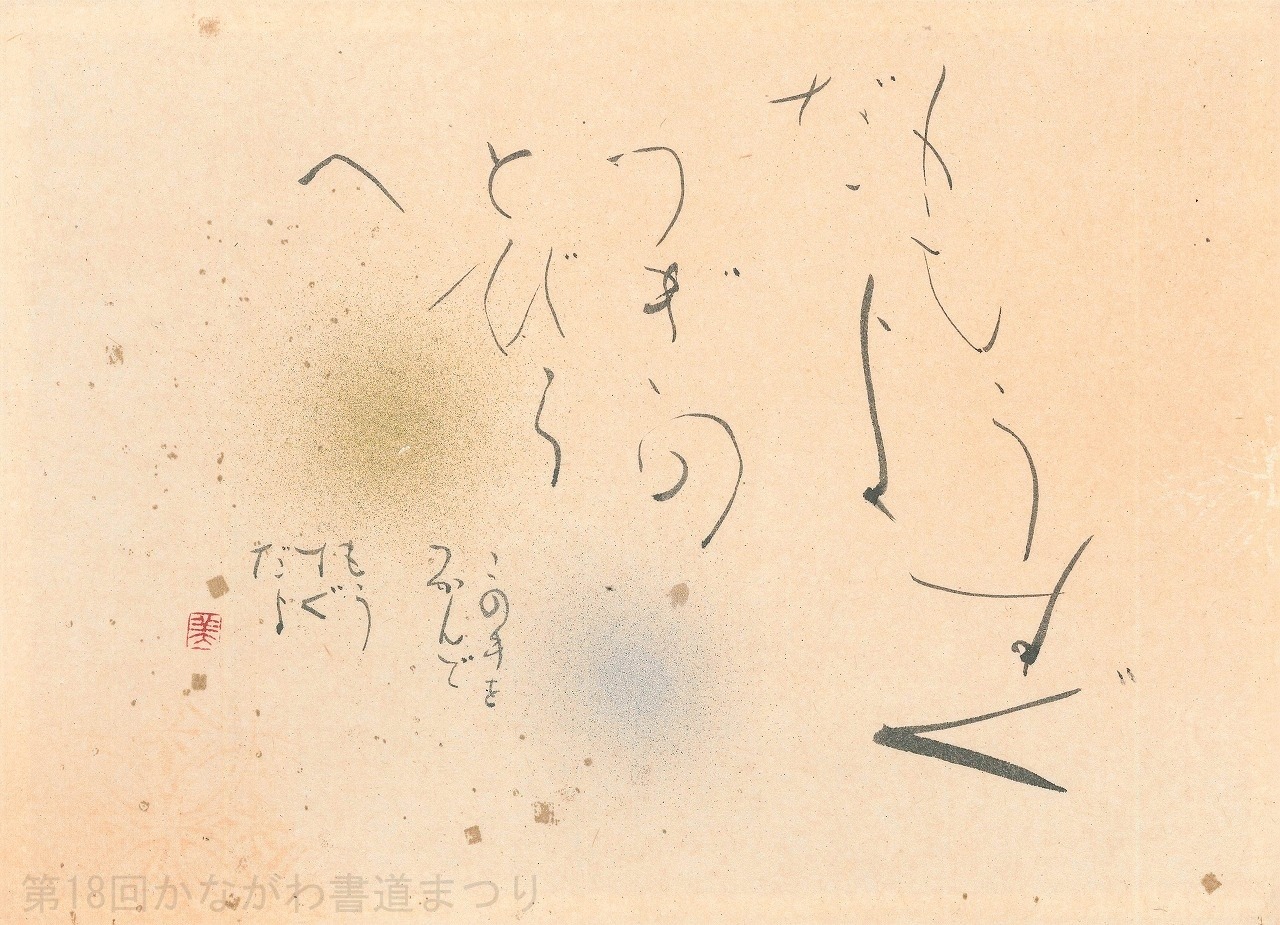 もうすぐ
だよ
つぎの
とびら
へ
この手を
つかんで
もう
すぐ
だよ
美
第18回かながわ書道まつり